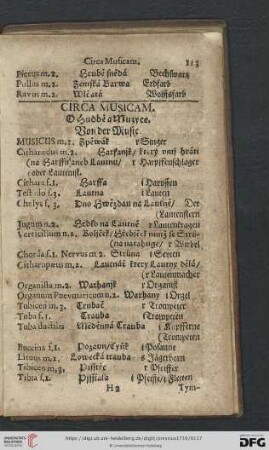 Circa Musicam. 113
Piceus m.2. Hrubě snědá Bechswartz
Pullus m.2. Zemská Barwa Erdfarb
Ravus m.2. Wlčatá Wolffsfarb
CIRCA MUSICAM.
O Hudbě a Muzyce.
Von der Music
MUSICUS m.2. Zpěwák r Singer
Citharoedus m.2. Harfanjk / který umj hráti
(na Harffu aneb Lautnu / r Harpffenschlager
(oder Lautenist.
Cithara f.1. Harffa i Harpffen
Testudo f.3. Lautna i Lauten
Chelys f.3. Dno Hwězdau na Lautně / Der
(Lautenstern
Jugum n.2. Hrdlo na Lautně r Lautenkragen
Verticillum n.2. Kolječk / Hřebjček nimž se Stru-
(na natahuge / r Wirbel
Chorda f.1. Nervus m.2. Struna i Seyten
Citharopoeus m.2. Lautnář který Lautny dělá /
(r Lautenmacher
Organista m.2. Warhanjk r Organist
Organum Pneumaticum n.2. Warhany i Orgel
Tubicen m.3. Trubač r Trompeter
Tuba f.1. Trauba i Trompeten
Tuba ductilis Měděnná Trauba i Kupfferne
(Trompeten
Buccina f.1. Pozaun / Cynk i Posaune
Lituus m.2. Lowecká trauba s Jägerhorn
Tibicen m.3. Pisstec r Pfeiffer
Tibia f.1. Pjsstiala i Pfeiffe / Fleuten
H2 Tym-
http://digi.ub.uni-heidelberg.de/diglit/comenius1716/0117
© Universitätsbibliothek Heidelberg
gefördert durch die
DFG